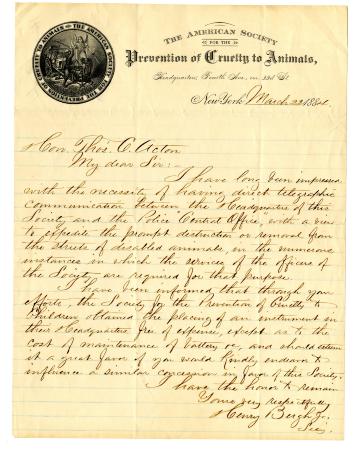 THE AMERICAN SOCIETY FOR THE PREVENTION OF CRUELTY TO ANIMALS
The American Society
FOR THE
Prevention of Cruelty to Animals,
Headquarters, Fourth Ave., cor. 22d St.
New York March 22 1884
Hon. Thos. C. Acton
My dear Sir:
I have long been impressed
with the necessity of having direct telegraphic
communication between the Headquarters of this
Society and the Police "Central Office," with a view
to expedite the prompt destruction or removal from
the streets of disabled animals, in the numerous
instances in which the services of the officers of
the Society are required for that purpose.
I have been informed that through your
efforts, the Society for the Prevention of Cruelty to
Children obtained the placing of an instrument in
their Headquarters free of expense, except as to the
cost of maintenance of battery &c, and should esteem
it a great favor if you would kindly endeavor to
influence a similar concession in favor of this Society.
I have the honor to remain
Yours very respectfully
Henry Bergh Jr.
Sec.